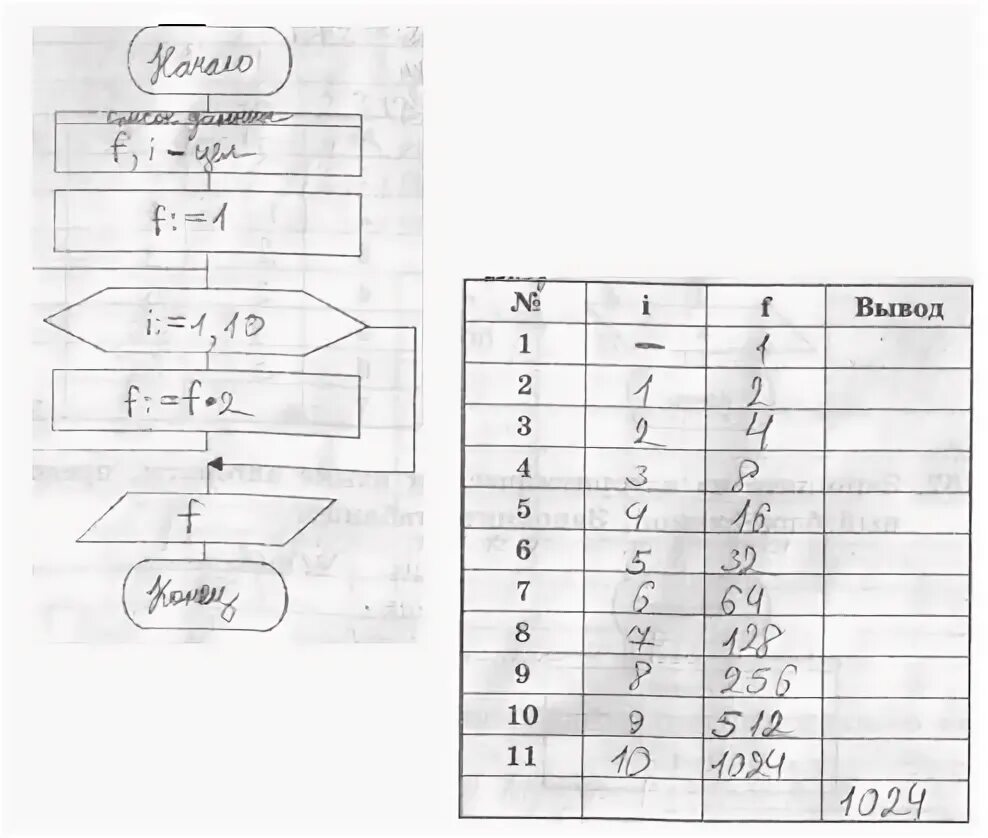 Начало
список данных
f, i – цел
f:=1
i:=1,10
f:=f•2
f
Конец
№ i f Вывод
1 – 1
2 1 2
3 2 4
4 3 8
5 4 16
6 5 32
7 6 64
8 7 128
9 8 256
10 9 512
11 10 1024
1024